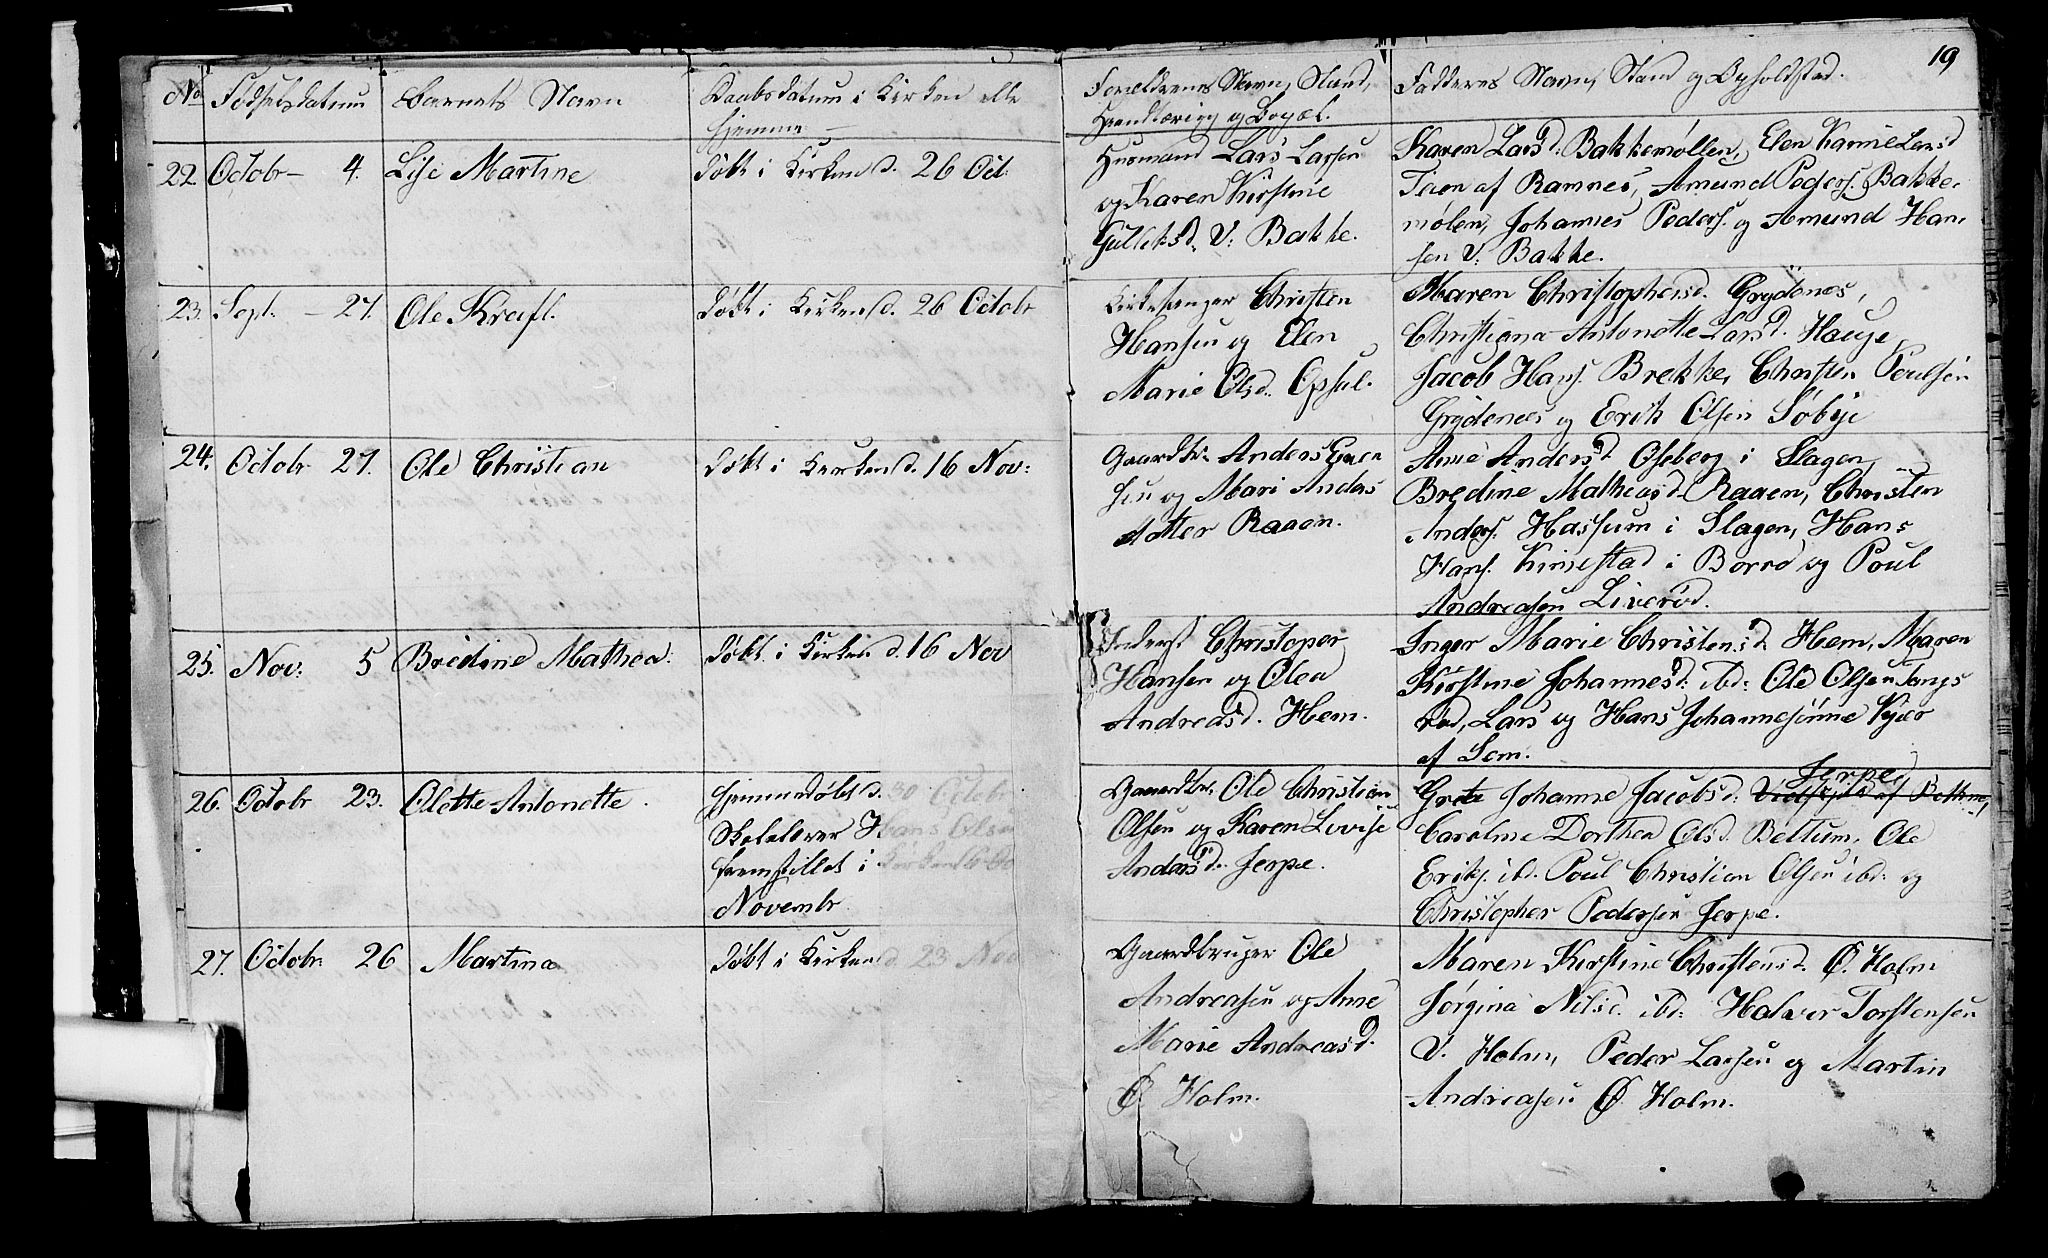 19
No Fødselsdatum Barnets Navn Daabsdatum i Kirken elle
hjemme –
Forældrenes Navn, Stand,
Haandtering og Bopæl.
Fadderes Navn, Stand og Opholdstad.
22. Octobr – 4. Lise Martine døbt i Kirken d. 26 Oct:
Huusmand Lars Larsen
og Karen Kirstine
Gulleksd. V: Bakke.
Karen Larsd. Bakkemøllen, Elen Karine Larsd
Teien af Ramnes, Amund Peders. Bakke-
mølen, Johannes Peders. og Amund Han-
sen V: Bakke.
23. Sept. – 27. Ole Kraft. døbt i Kirken d. 26 Octobr
Kirkesanger Christen
Hansen og Elen
Marie Olsd. Opsal.
Maren Christophersd. Grydenes,
Christiana Antonette Larsd. Hauge,
Jacob Hans. Brekke, Christen Poulsen
Grydenes og Erik Olsen Søbye
24. Octobr 27. Ole Christian døbt i Kirken d. 16 Nov:
Gaardbr. Anders
sen og Mari Anders
datter Raaen.
Ane Andersd. Oseberg i Slagen,
Bredine Matheasd. Raaen, Christen
Anders. Hassum i Slagen, Hans
Hans. Kirkestad i Borro og Poul
Andreasen Liverød.
25. Nov: 5 Bredine Mathea: døbt i Kirken d. 16 Nov
Inderst Christoper
Hansen og Olea
Andreasd. Hem.
Inger Marie Christensd. Hem, Maren
Kirstine Johannesd. ibd: Ole Olsen Tangs
rød, Lars og Hans Johannesønne Kjær
af Sem.
26. Octobr 23. Olette Antonette. hjemmedøbt d. 30 Octobr
Skolelærer Hans Olsen
fremstillet i Kirken 16 de
Novembr
Gaardbr. Ole Christian
Olsen og Karen Lovise
Andersd. Jerpe.
Jerpe,
Grete Johanne Jacobsd:
Caroline Dorthea Olsd. Bettum, Ole
Eriks. ibd. Poul Christian Olsen ibd: og
Christopher Pedersen Jerpe.
27. Octobr 26 Martina døbt i Kirken d 23 Nov
Gaardbruger Ole
Andreasen og Ane
Marie Andreasd.
Ø. Holm.
Maren Kirstine Christensd. Ø. Holm
Jørgina Nilsd. ibd: Halvor Torstensen
V. Holm, Peder Larsen og Martin
Andreasen Ø. Holm.